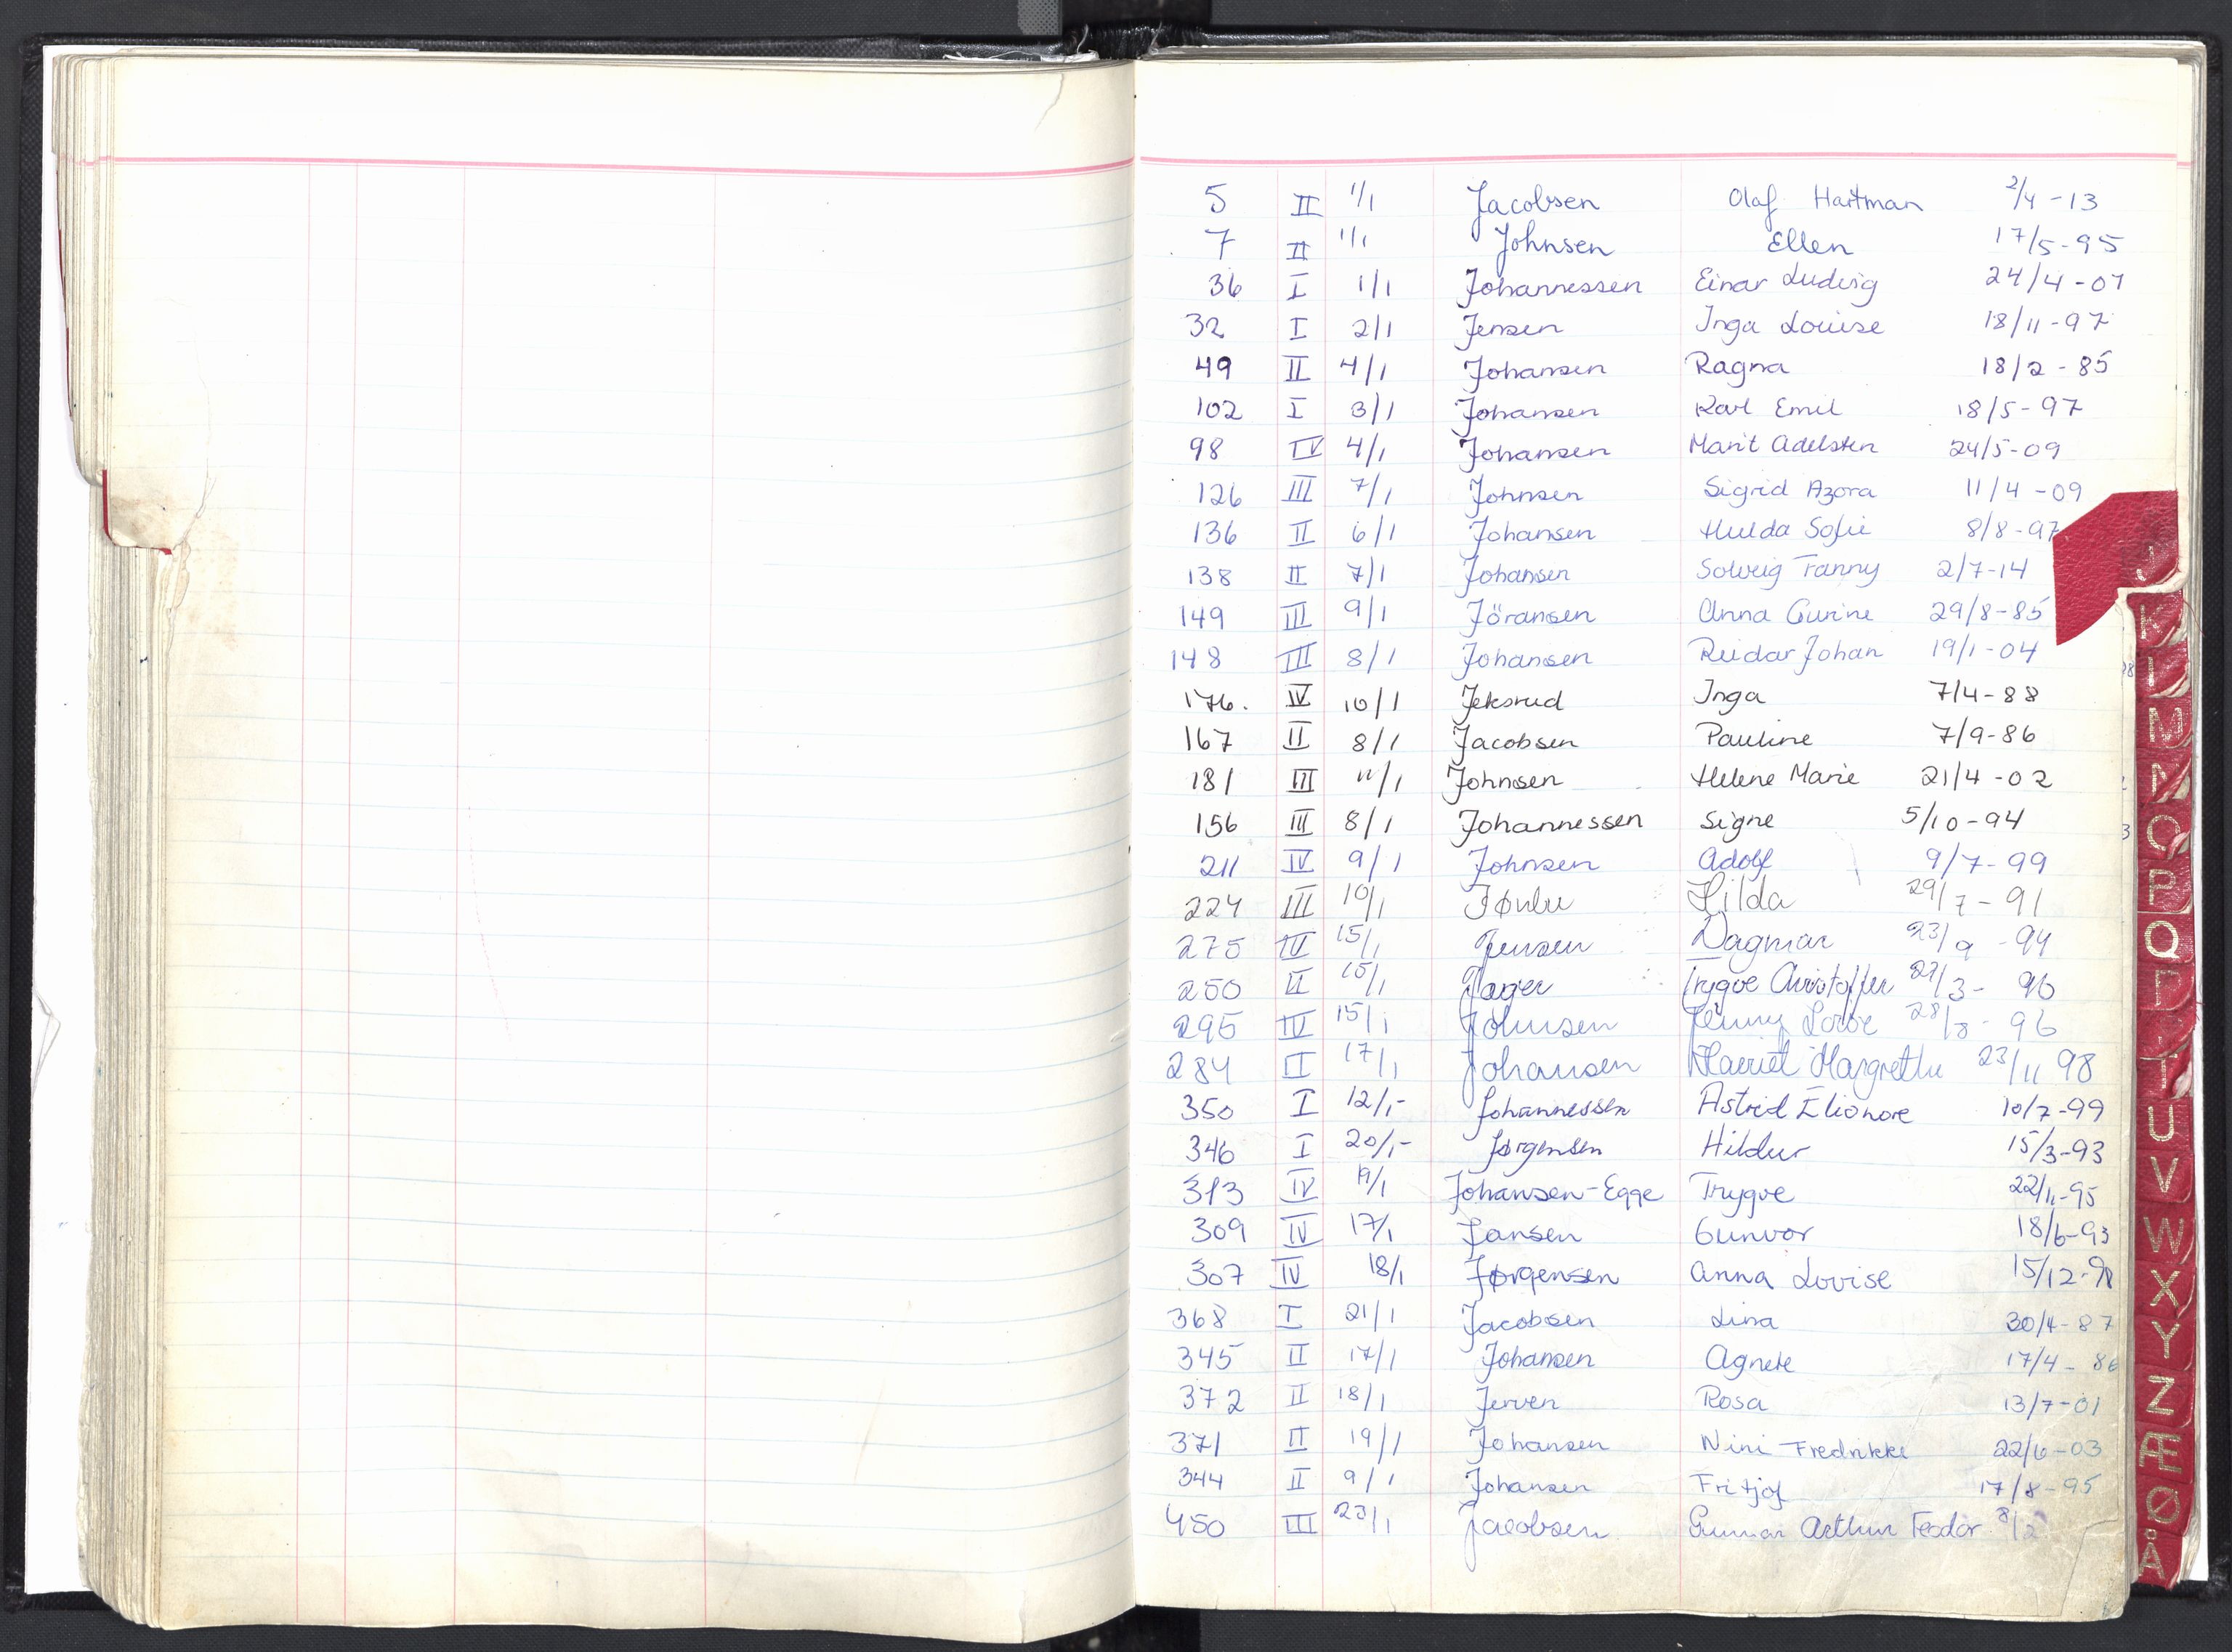 5 II 1/1 Jacobsen Olaf Hartman 2/4 - 13
7 II 1/1 Johnsen Ellen 17/5 - 95
36 I 1/1 Johannessen Einar Ludvig 24/4 - 07
32 I 2/1 Jensen Inga Louise 18/11 - 97
49 II 4/1 Johansen Ragna 18/2 - 85
102 I 3/1 Johansen Karl Emil 18/5 - 97
98 IV 4/1 Johansen Marit Adelsten 24/5 - 09
126 III 7/1 Johnsen Sigrid Azora 11/4 - 09
136 II 6/1 Johansen Hulda Sofie 8/8 - 97
138 II 7/1 Johansen Solveig Fanny 2/7 - 14
149 III 9/1 Jöransen Anna Gurine 29/8 - 85
148 III 8/1 Johansen Reidar Johan 19/1 - 04
176. IV 10/1 Jeksrud Inga 7/4 - 88
167 II 8/1 Jacobsen Pauline 7/9 - 86
181 III 11/1 Johnsen Helene Marie 21/4 - 02
156 III 8/1 Johannessen Signe 5/10 - 94
211 IV 9/1 Johnsen Adolf 9/7 - 99
224 III 10/1 Hilda 29/7 - 91
275 IV 15/1 Jensen Dagmar 23/9 - 94
250 II 15/1 Jager Trygve Christoffer 27/3 - 96
295 IV 15/1 Johnsen Jenny 28/8 - 96
284 II 17/1 Johansen Harriet Margrethe 23/11 98
350 I 12/1- Johannessen Astrid Elionore 10/7 - 99
346 I 20/1- Jørgensen Hildur 15/3 - 93
313 IV 19/1 Johansen - Egge Trygve 22/11 - 95
309 IV 17/1 Jansen Gunvor 18/6 - 93
307 IV 18/1 Jørgensen Anna Lovise 15/12 -
368 I 21/1 Jacobsen Lina 30/4 - 87
345 II 17/1 Johansen Agnete 17/4 - 86
372 II 18/1 Jerven Rosa 13/7 - 01
371 II 19/1 Johansen Nini Fredrikke 22/6 - 03
344 II 9/1 Johansen Fritjof 17/8 - 95
450 III 23/1 Jacobsen Gunnar Arthur Teodor 8/2
J
K
L
M
N
O
P
Q
T
U
V
W
X
Y
Z
Æ
Ø
Å